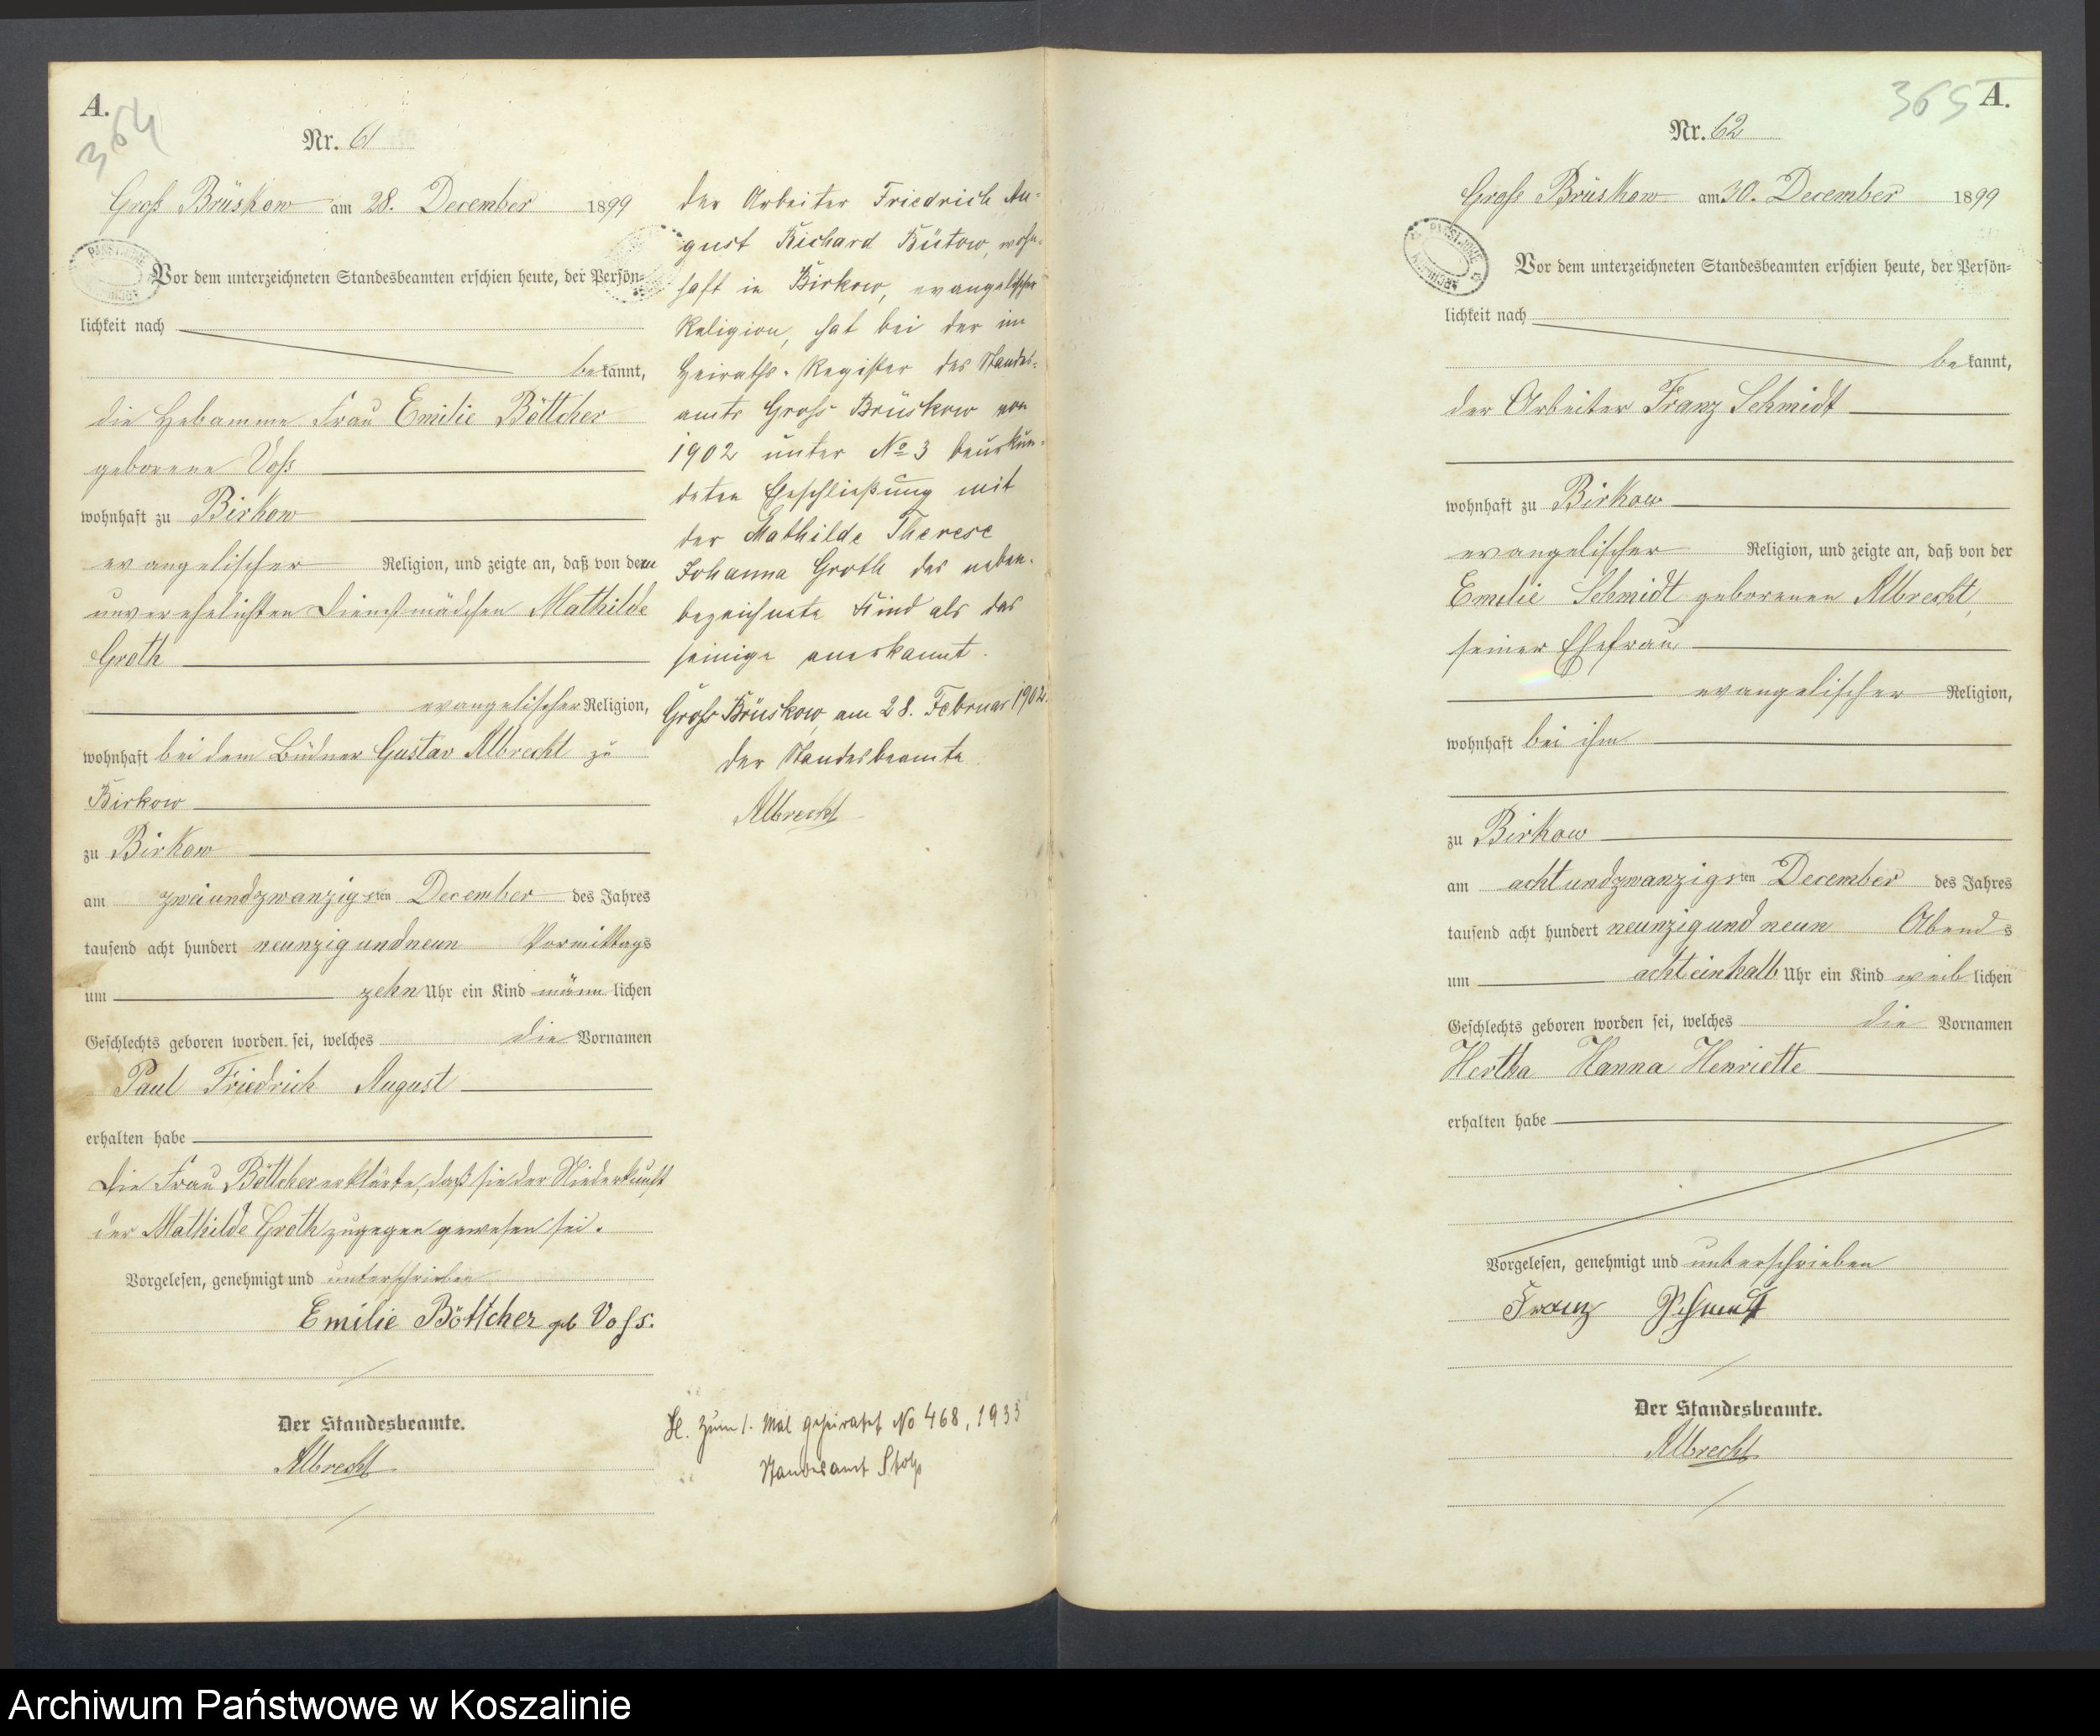 A.
364
Nr. 61
Groß Brüskow am 28. December 1899
Vor dem unterzeichneten Standesbeamten erschien heute, der Persön-
lichkeit nach
bekannt,
die Hebamme Frau Emilie Böttcher
geborene Voß
wohnhaft zu Birkow
evangelischer Religion, und zeigte an, daß von dem
unverehelichten Dienstmädchen Mathilde
Groth
evangelischer Religion,
wohnhaft bei dem Büdner Gustav Albrecht zu
Birkow
zu Birkow
am zweiundzwanzigsten December des Jahres
tausend acht hundert neunzig und neun Vormittags
um zehn Uhr ein Kind männlichen
Geschlechts geboren worden sei, welches die Vornamen
Paul Friedrich August
erhalten habe
Die Frau Böttcher erklärte, daß sie der Niederkunft
der Mathilde Groth zugegen gewesen sei.
Vorgelesen, genehmigt und unterschrieben
Emilie Böttcher geb Voß.
Der Standesbeamte.
Albrecht
Der Arbeiter Friedrich Au-
gust Richard Bütow, wohn-
haft in Birkow, evangelischer
Religion, hat bei der im
Heiraths-Register des Standes-
amts Groß Brüskow von
1902 unter No 3 beurkun-
deten Eheschließung mit
der Mathilde Therese
Johanna Groth das neben-
bezeichnete Kind als das
seinige anerkannt.
Groß Brüskow, am 28. Februar 1902.
Der Standesbeamte.
Albrecht
H. Zum 1. Mal geheiratet No 468, 1933
Standesamt Stolp
365
A.
Nr. 62
Groß Brüskow am 30. December 1899
Vor dem unterzeichneten Standesbeamten erschien heute, der Persön-
lichkeit nach
bekannt,
der Arbeiter Franz Schmidt
wohnhaft zu Birkow
evangelischer Religion, und zeigte an, daß von der
Emilie Schmidt geborenen Albrecht,
seiner Ehefrau
evangelischer Religion,
wohnhaft bei ihm
zu Birkow
am achtundzwanzigsten December des Jahres
tausend acht hundert neunzig und neun Abends
um achteinhalb Uhr ein Kind weiblichen
Geschlechts geboren worden sei, welches die Vornamen
Hertha Hanna Henriette
erhalten habe
Vorgelesen, genehmigt und unterschrieben
Franz Schmidt
Der Standesbeamte.
Albrecht
Archiwum Państwowe w Koszalinie